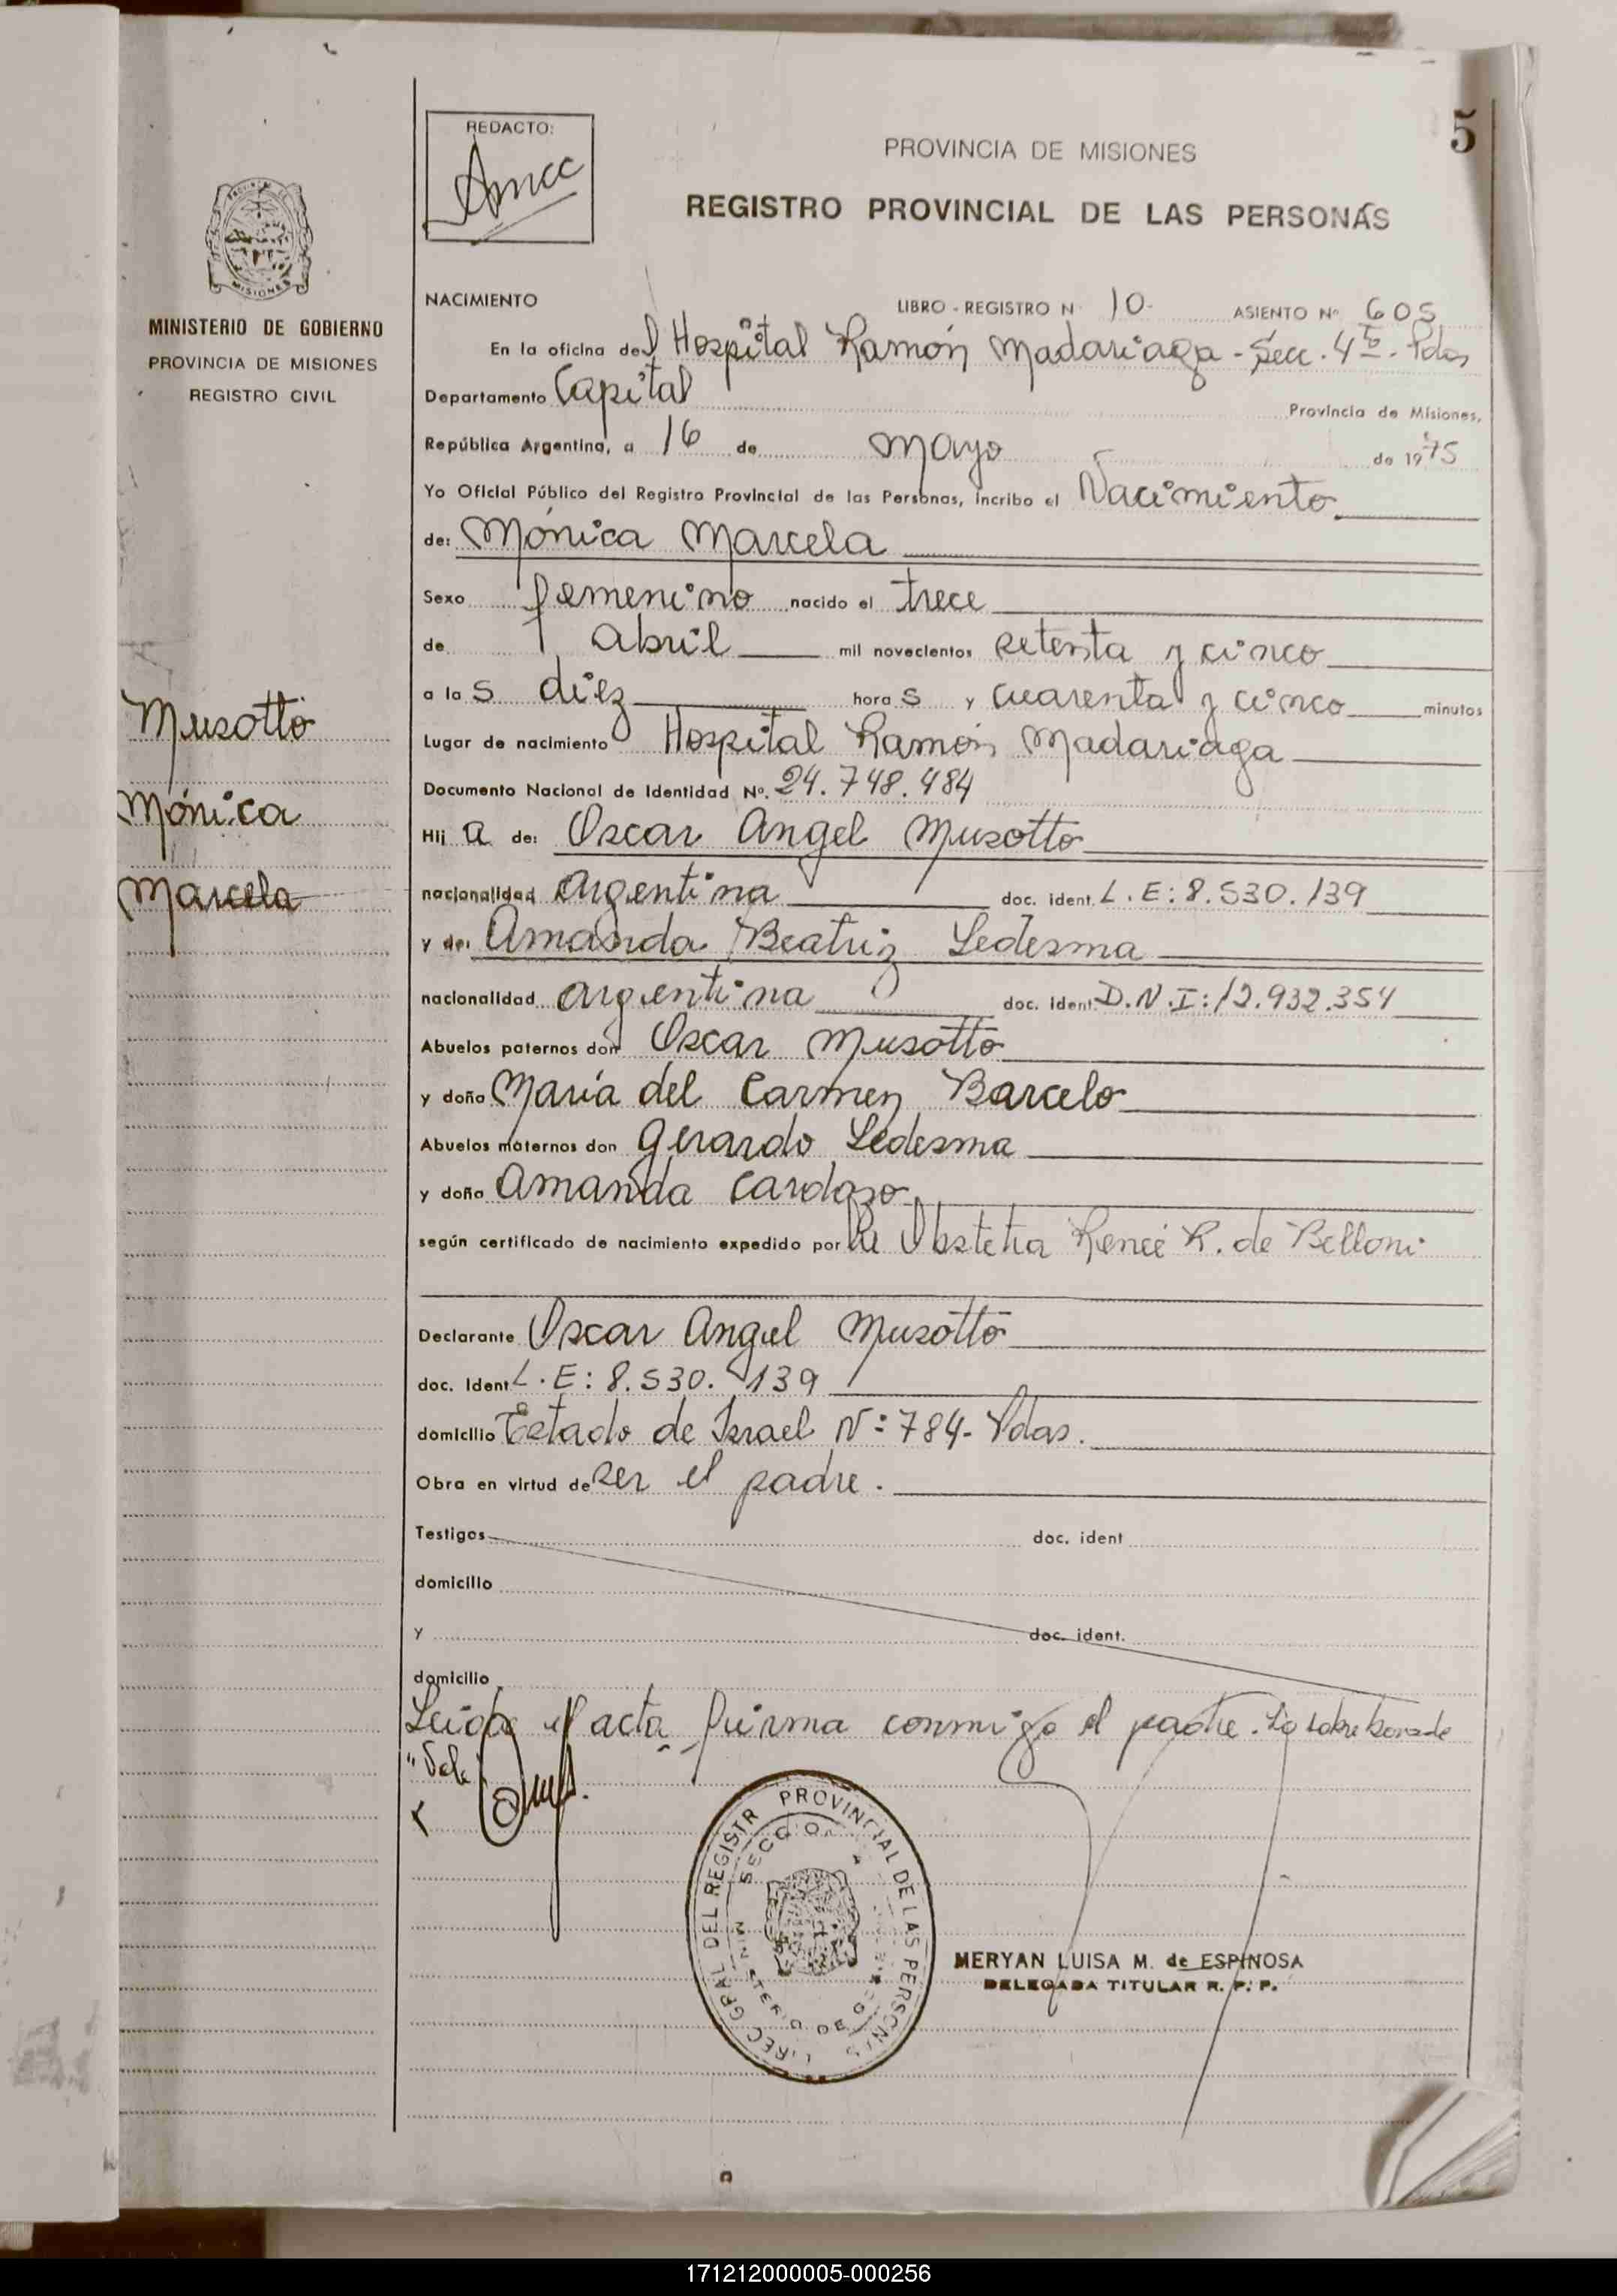 5
REDACTO:
PROVINCIA DE MISIONES
REGISTRO PROVINCIAL DE LAS PERSONAS
MISIONES
MINISTERIO DE GOBIERNO
PROVINCIA DE MISIONES
REGISTRO CIVIL
Musotto
Mónica
Marcela
NACIMIENTO LIBRO - REGISTRO N 10 ASIENTO Nº 605
En la oficina del Hospital Ramón Madariaga - Secc. 4ta - Pdas
Departamento Capital Provincia de Misiones,
República Argentina, a 16 de Mayo de 1975
Yo Oficial Público del Registro Provincial de las Personas, incribo el Nacimiento
de: Mónica Marcela
Sexo femenino nacido el trece
de abril mil novecientos setenta y cinco
a las diez horas y cuarenta y cinco minutos
Lugar de nacimiento Hospital Ramón Madariaga
Documento Nacional de Identidad Nº. 24.748.484
Hija de: Oscar Angel Musotto
nacionalidad argentina doc. ident. L.E: 8.530.139
y de: Amanda Beatriz Ledesma
nacionalidad argentina doc. ident. D.N.I: 12.932.354
Abuelos paternos don Oscar Musotto
y doña María del Carmen Barcelo
Abuelos maternos don Gerardo Ledesma
y doña Amanda Cardozo
según certificado de nacimiento expedido por la Obstetra Reneé R. de Belloni
Declarante Oscar Angel Musotto
doc. Ident L.E: 8.530.139
domicilio Estado de Israel Nº 784- Pdas.
Obra en virtud de ser el padre.
Testigos doc. ident
domicilio
y doc. ident.
domicilio
Leida el acta firma conmigo el padre. Lo sobre borrado
"Vale
PROVINCIAL DE LAS PERSONAS
MERYAN LUISA M. de ESPINOSA
DELEGADA TITULAR R. P. P.
171212000005-000256